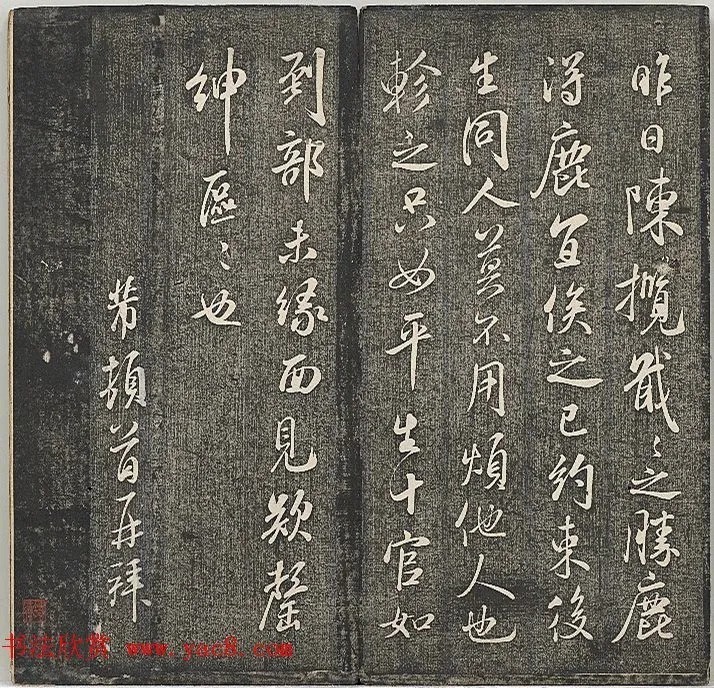 昨日陳攬戢戢之勝鹿
得鹿宜俟之已約束後
生同人莫不用煩他人也
軫之只如平生十官如
到部未緣面見欵罄
紳區區也
芾頓首再拜
书法欣赏 www.yac8.com